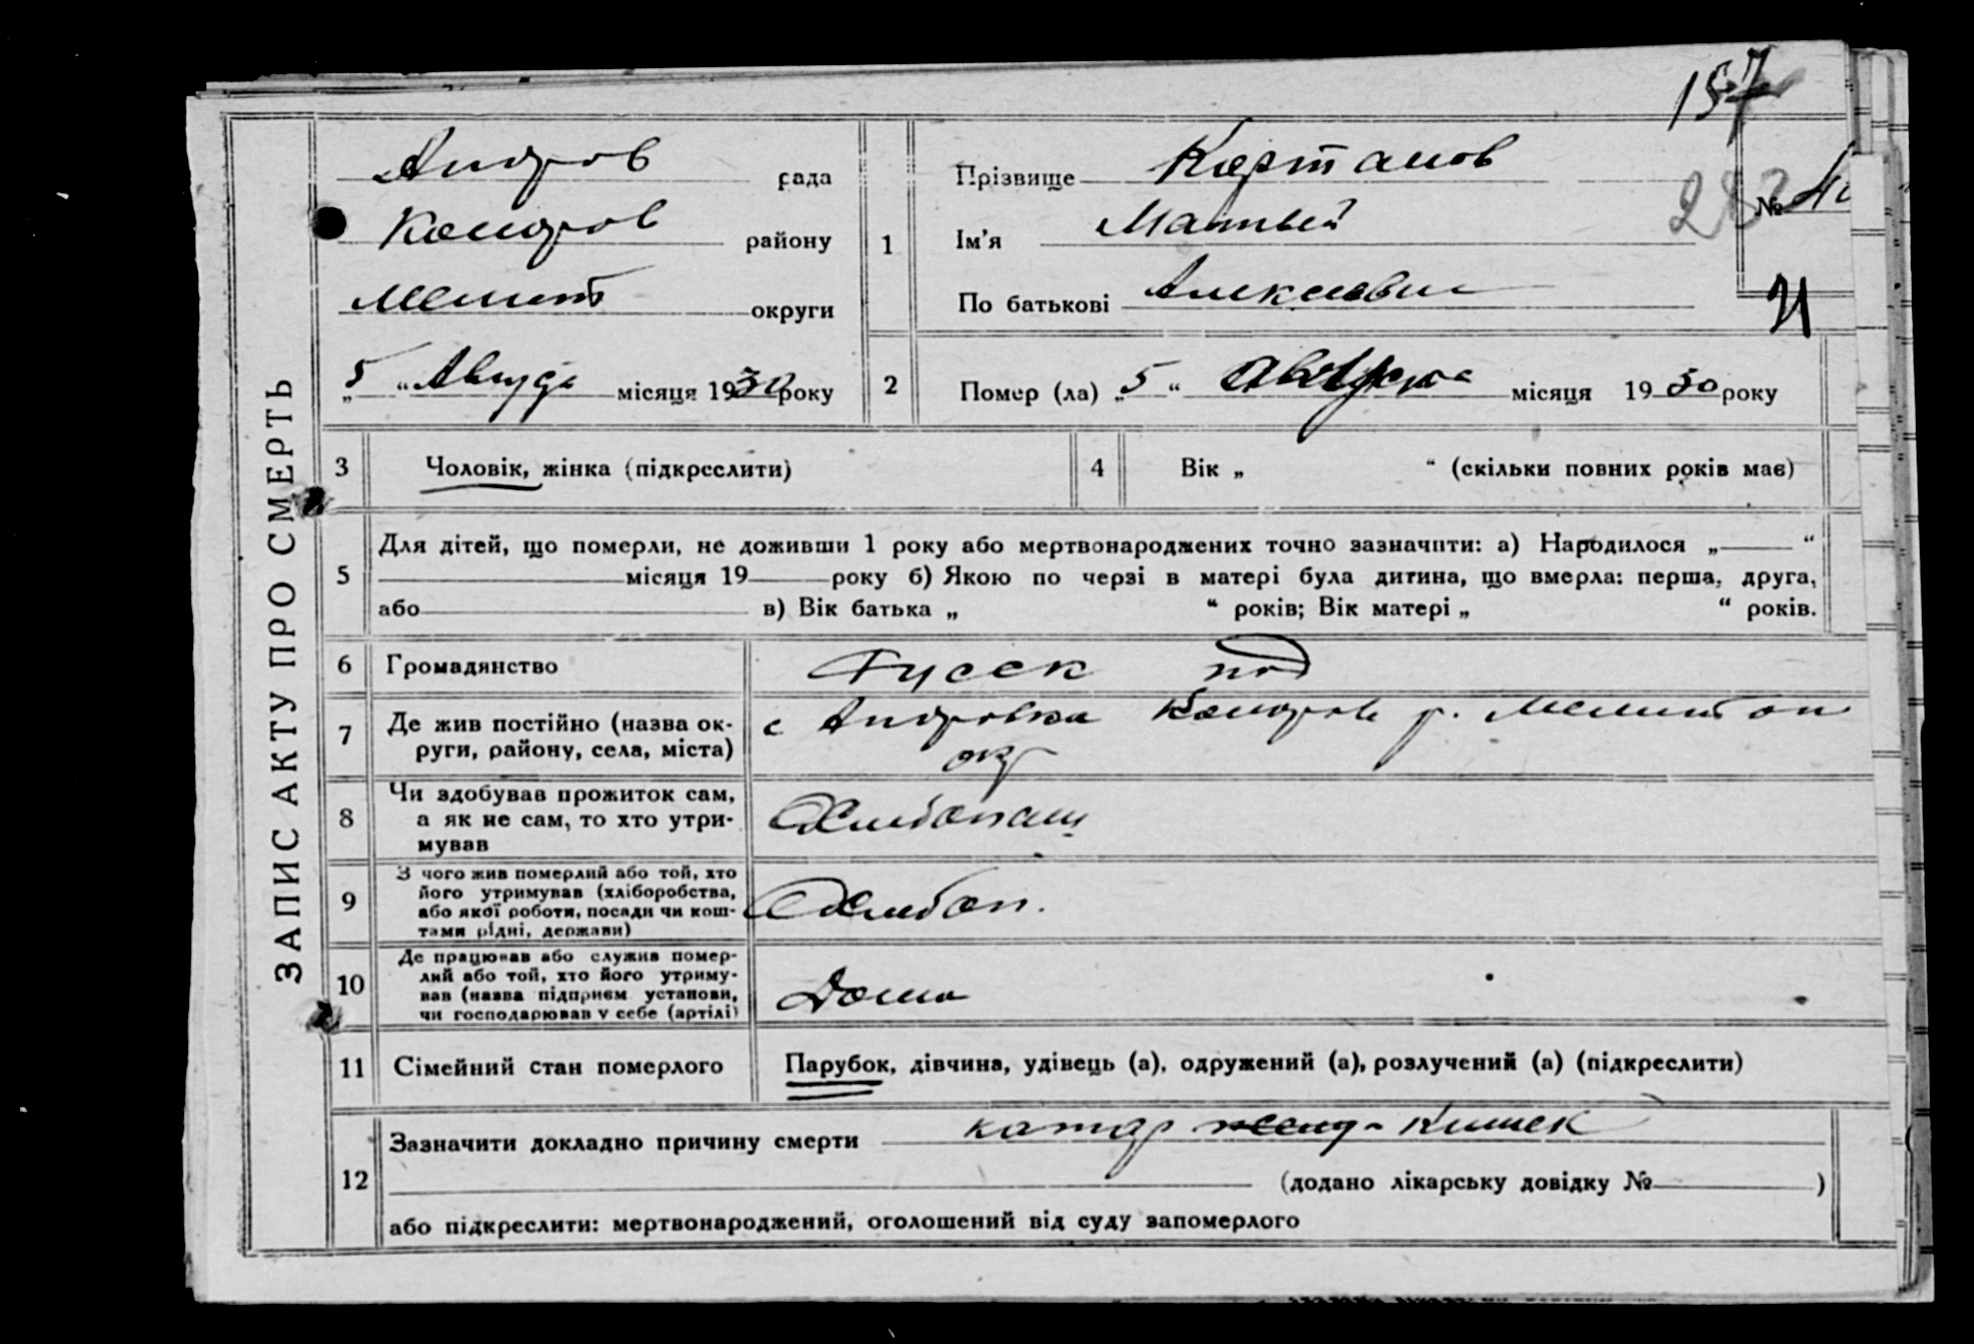 ЗАПИС АКТУ ПРО СМЕРТЬ
157
Андров рада
Кондров району
Мелит округи
„5“ Августа місяця 1930 року
1
Прізвище Картамов
Ім'я Матвей
По батькові Алексеевич
№
21
2
Помер (ла) „5“ Августа місяця 1930 року
3 Чоловік, жінка (підкреслити)
4 Вік „ “ (скільки повних років має)
5
Для дітей, що померли, не доживши 1 року або мертвонароджених точно зазначити: а) Народилося „ “
місяця 19 року б) Якою по черзі в матері була дитина, що вмерла: перша, друга,
або в) Вік батька „ “ років; Вік матері „ “ років.
6 Громадянство Русск под
7 Де жив постійно (назва ок-
руги, району, села, міста)
с Андровка Кондров р. Мелитоп
окр
8 Чи здобував прожиток сам,
а як не сам, то хто утри-
мував
Хлебопаш
9 З чого жив померлий або той, хто
його утримував (хліборобства,
або якої роботи, посади чи кош-
тами рідні, держави)
Хлебоп.
10 Де працював або служив помер-
лий або той, хто його утриму-
вав (назва підприєм. установи,
чи господарював у себе (артілі)
Дома
11 Сімейний стан померлого Парубок, дівчина, удівець (а), одружений (а), розлучений (а) (підкреслити)
12
Зазначити докладно причину смерти катар кишек
(додано лікарську довідку № )
або підкреслити: мертвонароджений, оголошений від суду запомерлого